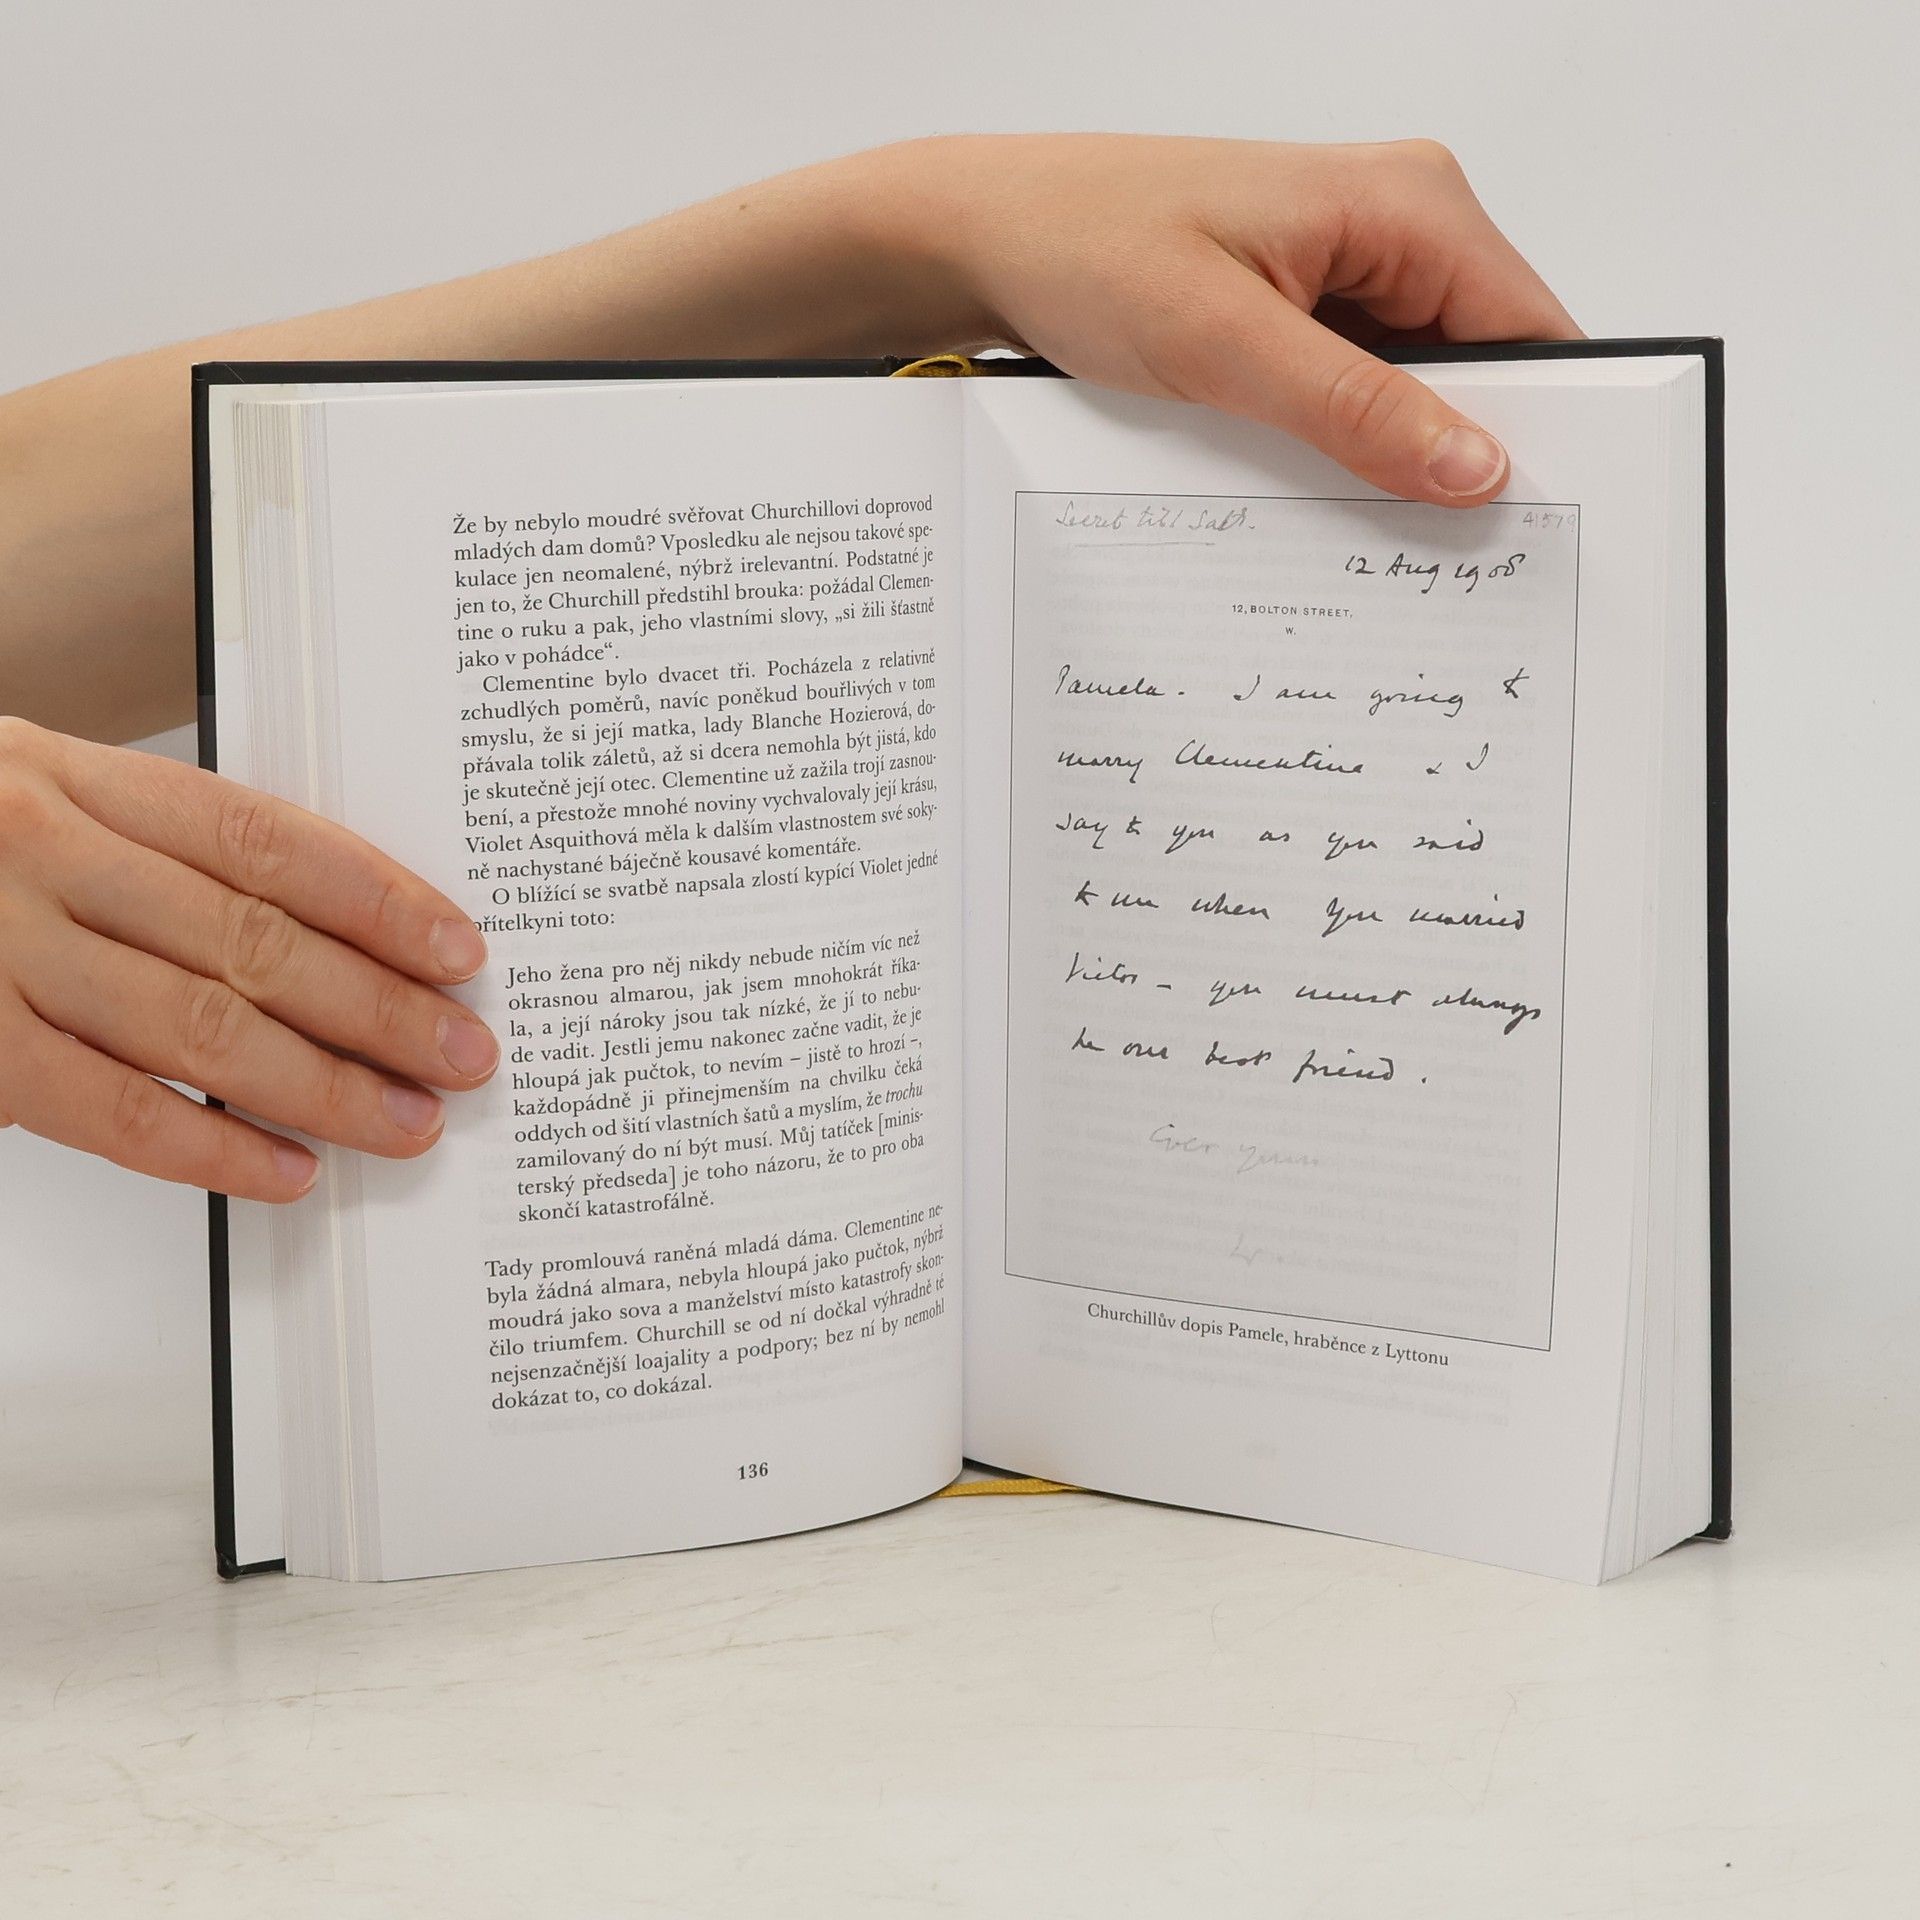 Že by nebylo moudré svěřovat Churchillovi doprovod
mladých dam domů? Vposledku ale nejsou takové spe-
kulace jen neomalené, nýbrž irelevantní. Podstatné je
jen to, že Churchill předstihl brouka: požádal Clemen-
tine o ruku a pak, jeho vlastními slovy, „si žili šťastně
jako v pohádce“.
Clementine bylo dvacet tři. Pocházela z relativně
zchudlých poměrů, navíc poněkud bouřlivých v tom
smyslu, že si její matka, lady Blanche Hozierová, do-
přávala tolik záletů, až si dcera nemohla být jistá, kdo
je skutečně její otec. Clementine už zažila trojí zasnou-
bení, a přestože mnohé noviny vychvalovaly její krásu,
Violet Asquithová měla k dalším vlastnostem své soky-
ně nachystané báječně kousavé komentáře.
O blížící se svatbě napsala zlostí kypící Violet jedné
přítelkyni toto:
Jeho žena pro něj nikdy nebude ničím víc než
okrasnou almarou, jak jsem mnohokrát říka-
la, a její nároky jsou tak nízké, že jí to nebu-
de vadit. Jestli jemu nakonec začne vadit, že je
hloupá jak pučtok, to nevím – jistě to hrozí –,
každopádně ji přinejmenším na chvilku čeká
oddych od šití vlastních šatů a myslím, že trochu
zamilovaný do ní být musí. Můj tatíček [minis-
terský předseda] je toho názoru, že to pro oba
skončí katastrofálně.
Tady promlouvá raněná mladá dáma. Clementine ne-
byla žádná almara, nebyla hloupá jako pučtok, nýbrž
moudrá jako sova a manželství místo katastrofy skon-
čilo triumfem. Churchill se od ní dočkal výhradně té
nejsenzačnější loajality a podpory; bez ní by nemohl
dokázat to, co dokázal.
136
Secret till Satr.
41579
12 Aug 1908
12, BOLTON STREET,
W.
Pamela. I am going to
marry Clementine & I
say to you as you said
to me when you married
Victor – you must always
be our best friend.
Ever yours
W.
Churchillův dopis Pamele, hraběnce z Lyttonu